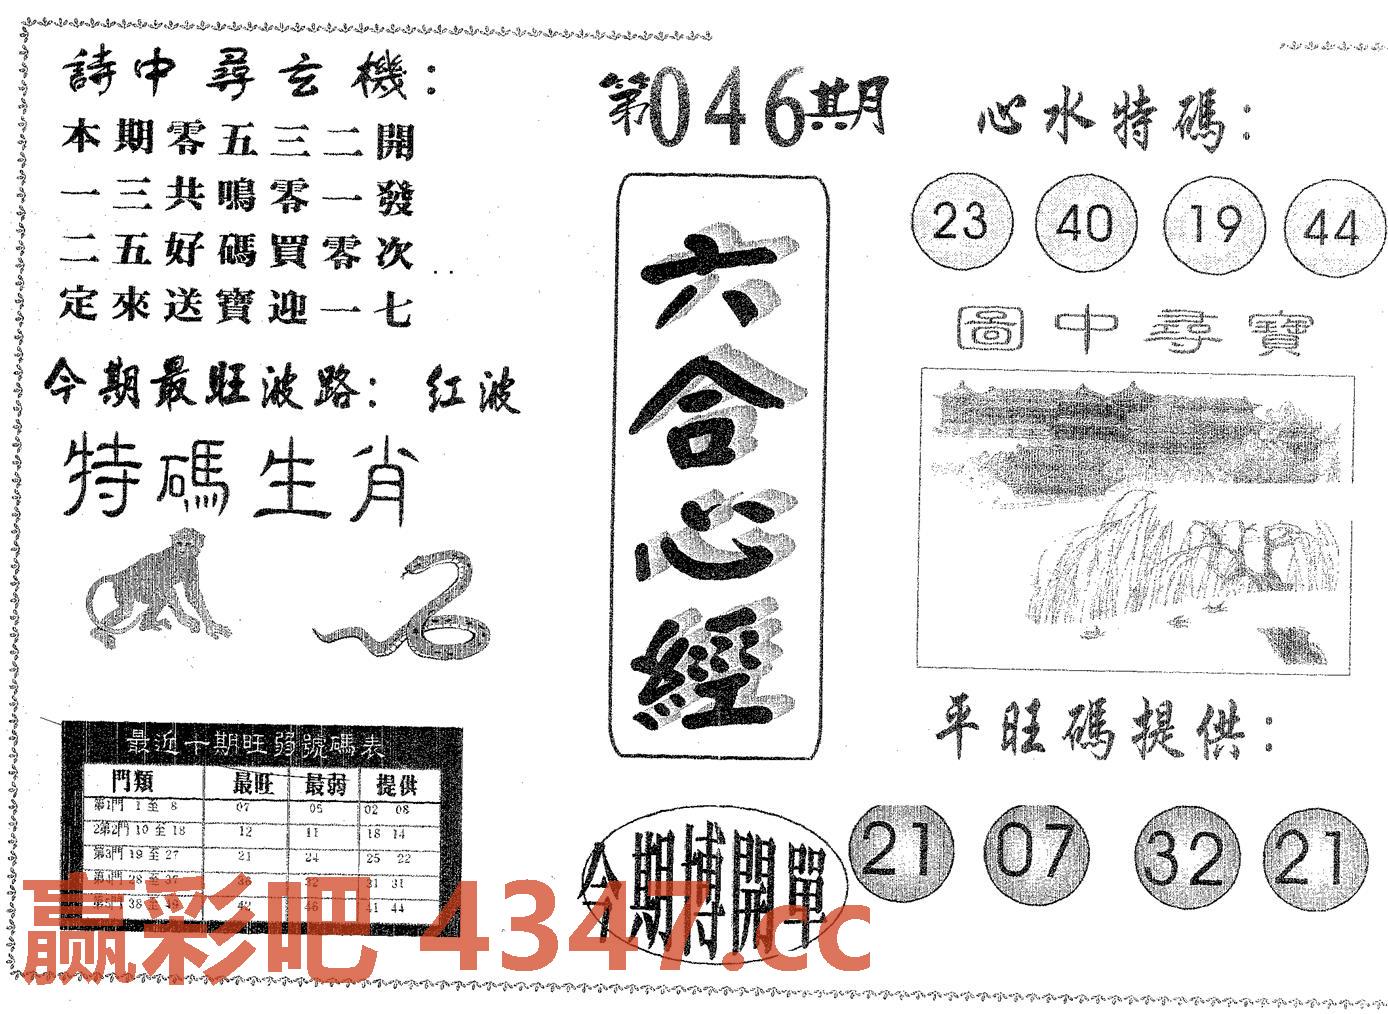 詩中尋玄機：
本期零五三二開
一三共鳴零一發
二五好碼買零次
定來送寶迎一七
今期最旺波路： 红波
特碼生肖
最近十期旺弱號碼表
門類 最旺 最弱 提供
第1門 1 至 8 07 05 02 08
2第2門 10 至 18 12 11 18 14
第3門 19 至 27 21 24 25 22
第4門 28 至 37 36 32 31 31
第5門 38 至 49 42 46 41 44
第046期
六合心經
今期博開單
心水特碼：
23 40 19 44
圖中尋寶
平旺碼提供：
21 07 32 21
赢彩吧 4347.cc